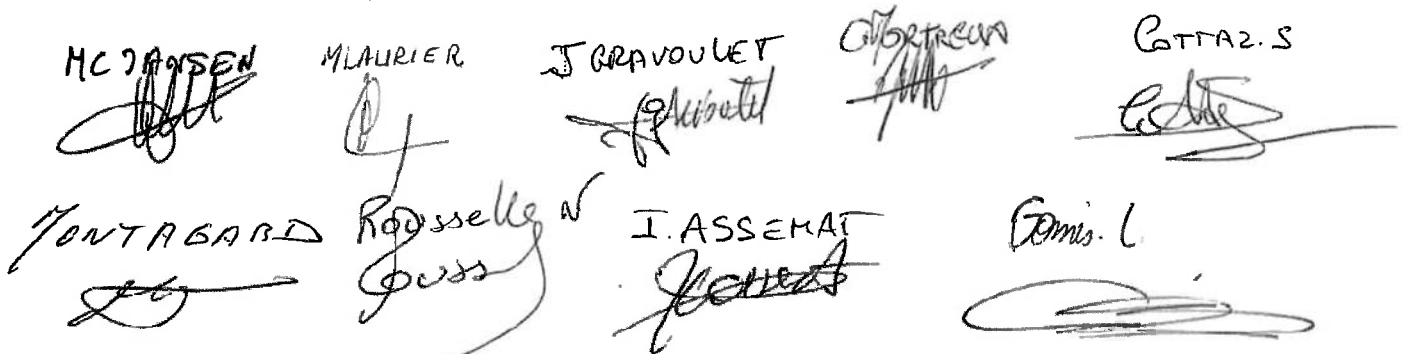 MC JANSEN MLAURIER J GRAVOULET C MORTREUX COTTAZ.S
MONTAGARD Rousselle N I. ASSEMAT Gomis. L